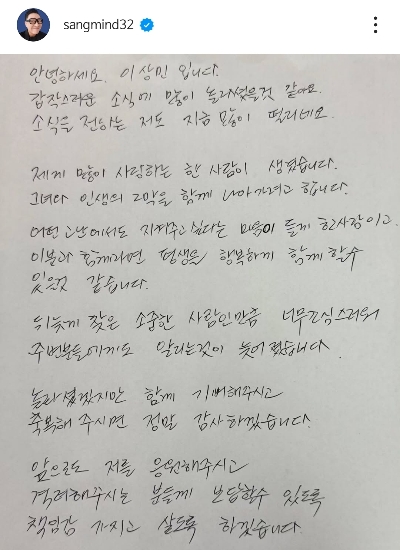 sangmind32
안녕하세요. 이상민 입니다.
갑작스러운 소식에 많이 놀라셨을것 같아요.
소식을 전하는 저도 지금 많이 떨리네요.
제게 많이 사랑하는 한 사람이 생겼습니다.
그녀와 인생의 2막을 함께 나아가려고 합니다.
어떤 고난에서도 지켜주고 싶다는 마음이 들게 한 사람이고.
이분과 함께라면 평생을 행복하게 함께 할수
있을것 같습니다.
뒤늦게 찾은 소중한 사람인만큼 너무 조심스러워
주변분들에게도 알리는것이 늦어졌습니다.
놀라셨겠지만 함께 기뻐해주시고
축복해 주시면 정말 감사하겠습니다.
앞으로도 저를 응원해주시고
격려해주시는 분들께 보답할수 있도록
책임감 가지고 살도록 하겠습니다.